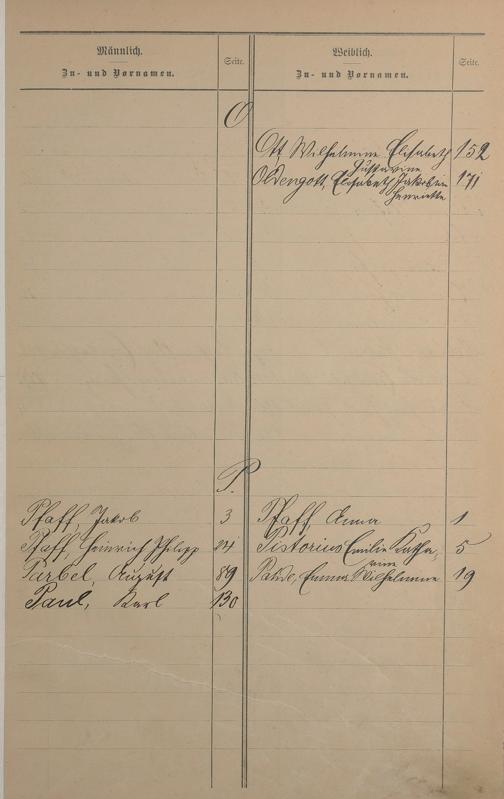 Männlich.
Zu- und Vornamen.
Seite.
Weiblich.
Zu- und Vornamen.
Seite.
O
Ott, Wilhelmine Elisabeth 152
Gustavine
Oldengott, Elisabeth Jakobine 171
Henriette
P.
Pfaff, Jakob 3
Pfaff, Anna 1
Pfaff, Heinrich Philipp 24
Pistorius Emilie Katha- 5
rine
Parbel, August 89
Emma Wilhelmine 19
Paul, Karl 130